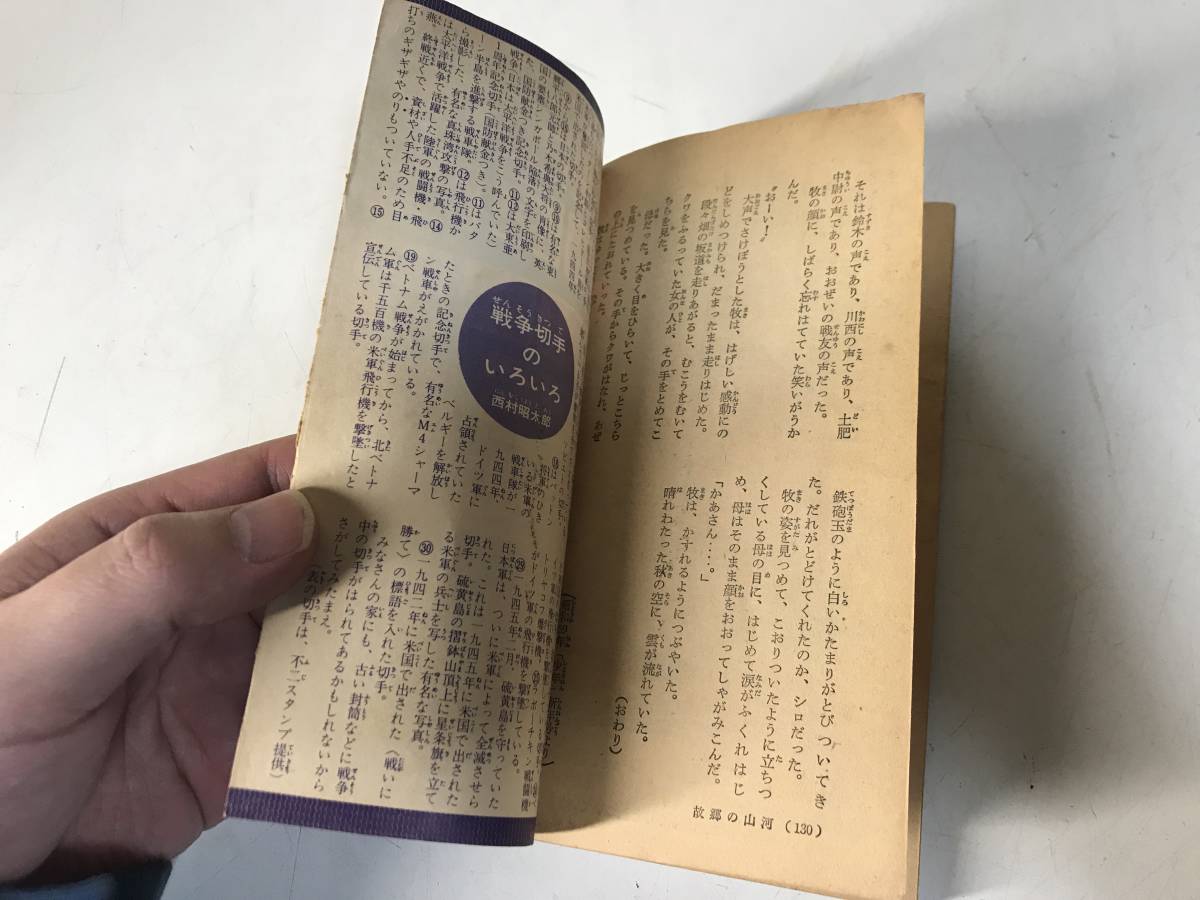 それは鈴木の声であり、川西の声であり、土肥
中尉の声であり、おおぜいの戦友の声だった。
牧の顔に、しばらく忘れはてていた笑いがうか
んだ。
「おーい!」
大声でさけぼうとした牧は、はげしい感動にの
どをしめつけられ、だまったまま走りはじめた。
段々畑の坂道を走りあがると、むこうをむいて
クワをふるっていた女の人が、その手をとめてこ
ちらを見た。
母だった。大きく目をひらいて、じっとこちら
を見つめている。その手からクワがはなれ、あぜ
の上にたおれていった。
鉄砲玉のように白いかたまりがとびついてき
た。だれがとどけてくれたのか、シロだった。
牧の姿を見つめて、こおりついたように立ちつ
くしている母の目に、はじめて涙がふくれはじ
め、母はそのまま顔をおおってしゃがみこんだ。
「かあさん……。」
牧は、かすれるようにつぶやいた。
晴れわたった秋の空に、雲が流れていた。
(おわり)
故郷の山河(130)
戦争切手
の
いろいろ
西村昭太郎
た、国防献金つき記念切手。⑪⑫は大東亜
戦争(日本は太平洋戦争をこう呼んでいた)
1周年記念切手(国防献金つき)。⑪はバタ
ーン半島を進撃する戦車隊。⑫は飛行機か
ら撮影した、有名な真珠湾攻撃の写真。⑭
は太平洋戦争で活躍した陸軍の戦闘機・飛
燕。終戦近くで、資材や人手不足のため目
打ちのギザギザやのりもついていない。⑮
いる米軍の
戦車隊が一
九四四年、
ドイツ軍に
占領されていた
ベルギーを解放し
たときの記念切手で、有名なM4シャーマ
ン戦車がえがかれている。
⑲ベトナム戦争が始まってから、北ベトナ
ム軍は千五百機の米軍飛行機を撃墜したと
宣伝している切手。
がドイツ軍の飛行機を撃墜している。
㉙一九四五年二月、硫黄島を守っていた
日本軍は、ついに米軍によって全滅させら
れた。これは一九四五年に米国で出された
切手。硫黄島の摺鉢山頂上に星条旗を立て
る米軍の兵士を写した有名な写真。
㉚一九四二年に米国で出された(戦いに
勝て)の標語を入れた切手。
みなさんの家にも、古い封筒などに戦争
中の切手がはられてあるかもしれないから
さがしてみたまえ。
(表の切手は、不二スタンプ提供)